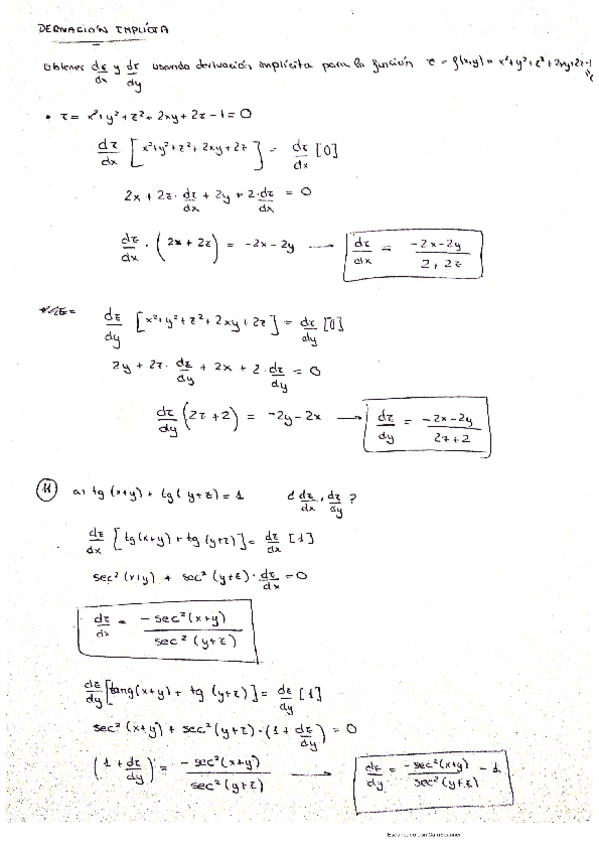 DERIVACIÓN IMPLÍCITA
Obtener dz/dx y dz/dy usando derivación implícita para la función z = f(x,y) = x²+y²+z²+2xy+2z-1
• z = x²+y²+z²+2xy+2z-1=0
dz/dx [x²+y²+z²+2xy+2z] = dz/dx [0]
2x + 2z · dz/dx + 2y + 2·dz/dx = 0
dz/dx · (2x + 2z) = -2x - 2y → dz/dx = (-2x-2y)/(2+2z)
dz/dy [x²+y²+z²+2xy+2z] = dz/dy [0]
2y + 2z · dz/dy + 2x + 2·dz/dy = 0
dz/dy (2z+2) = -2y-2x → dz/dy = (-2x-2y)/(2z+2)
11 a) tg (x+y) + tg (y+z) = 1 ¿ dz/dx, dz/dy ?
dz/dx [tg(x+y) + tg (y+z)] = dz/dx [1]
sec² (x+y) + sec² (y+z) · dz/dx = 0
dz/dx = -sec²(x+y)/sec² (y+z)
dz/dy [tang(x+y) + tg (y+z)] = dz/dy [1]
sec² (x+y) + sec² (y+z) · (1 + dz/dy) = 0
(1 + dz/dy) = -sec²(x+y)/sec² (y+z) → dz/dy = -sec²(x+y)/sec² (y+z) - 1
Escaneado con CamScanner